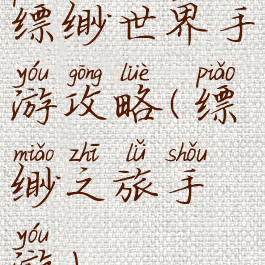 缥缈世界手
yóu gōng lüè piǎo
游攻略(缥
miǎo zhī lǚ shǒu
缈之旅手
yóu
游)